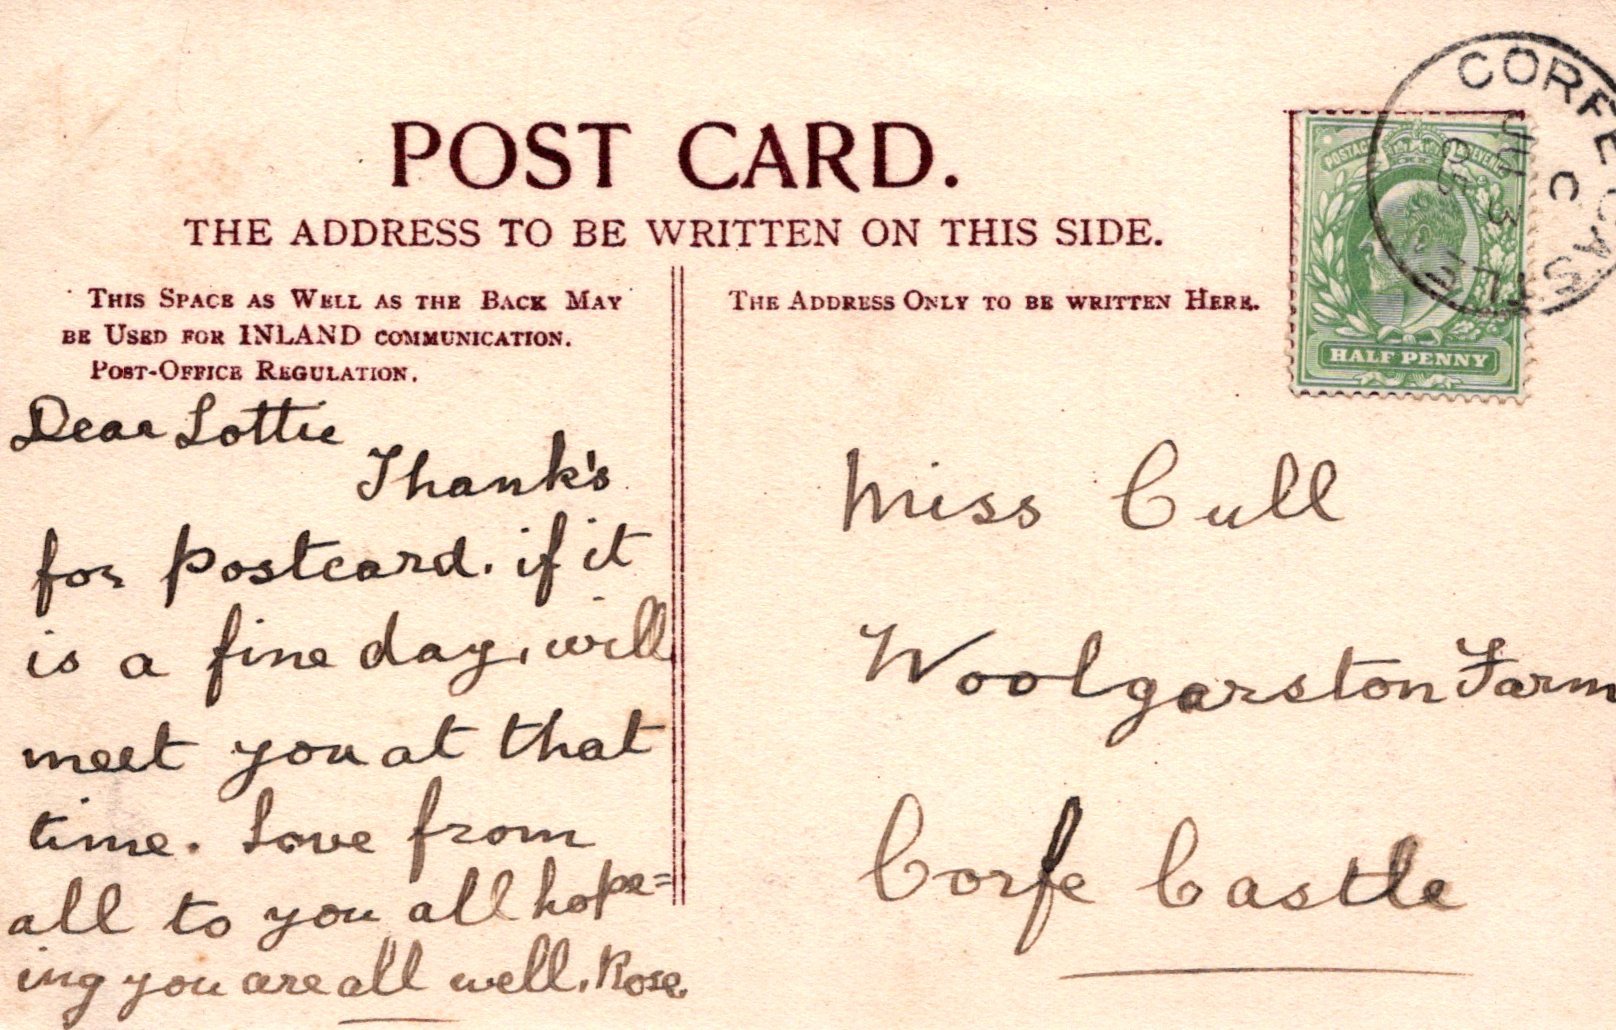 POST CARD.
THE ADDRESS TO BE WRITTEN ON THIS SIDE.
THIS SPACE AS WELL AS THE BACK MAY
BE USED FOR INLAND COMMUNICATION.
POST-OFFICE REGULATION.
Dear Lottie
Thank's
for postcard. if it
is a fine day, will
meet you at that
time. Love from
all to you all hope=
ing you are all well. Rose.
THE ADDRESS ONLY TO BE WRITTEN HERE.
Miss Cull
Woolgarston Farm
Corfe Castle
POSTAGE REVENUE
HALF PENNY
CORFE CASTLE
C
3